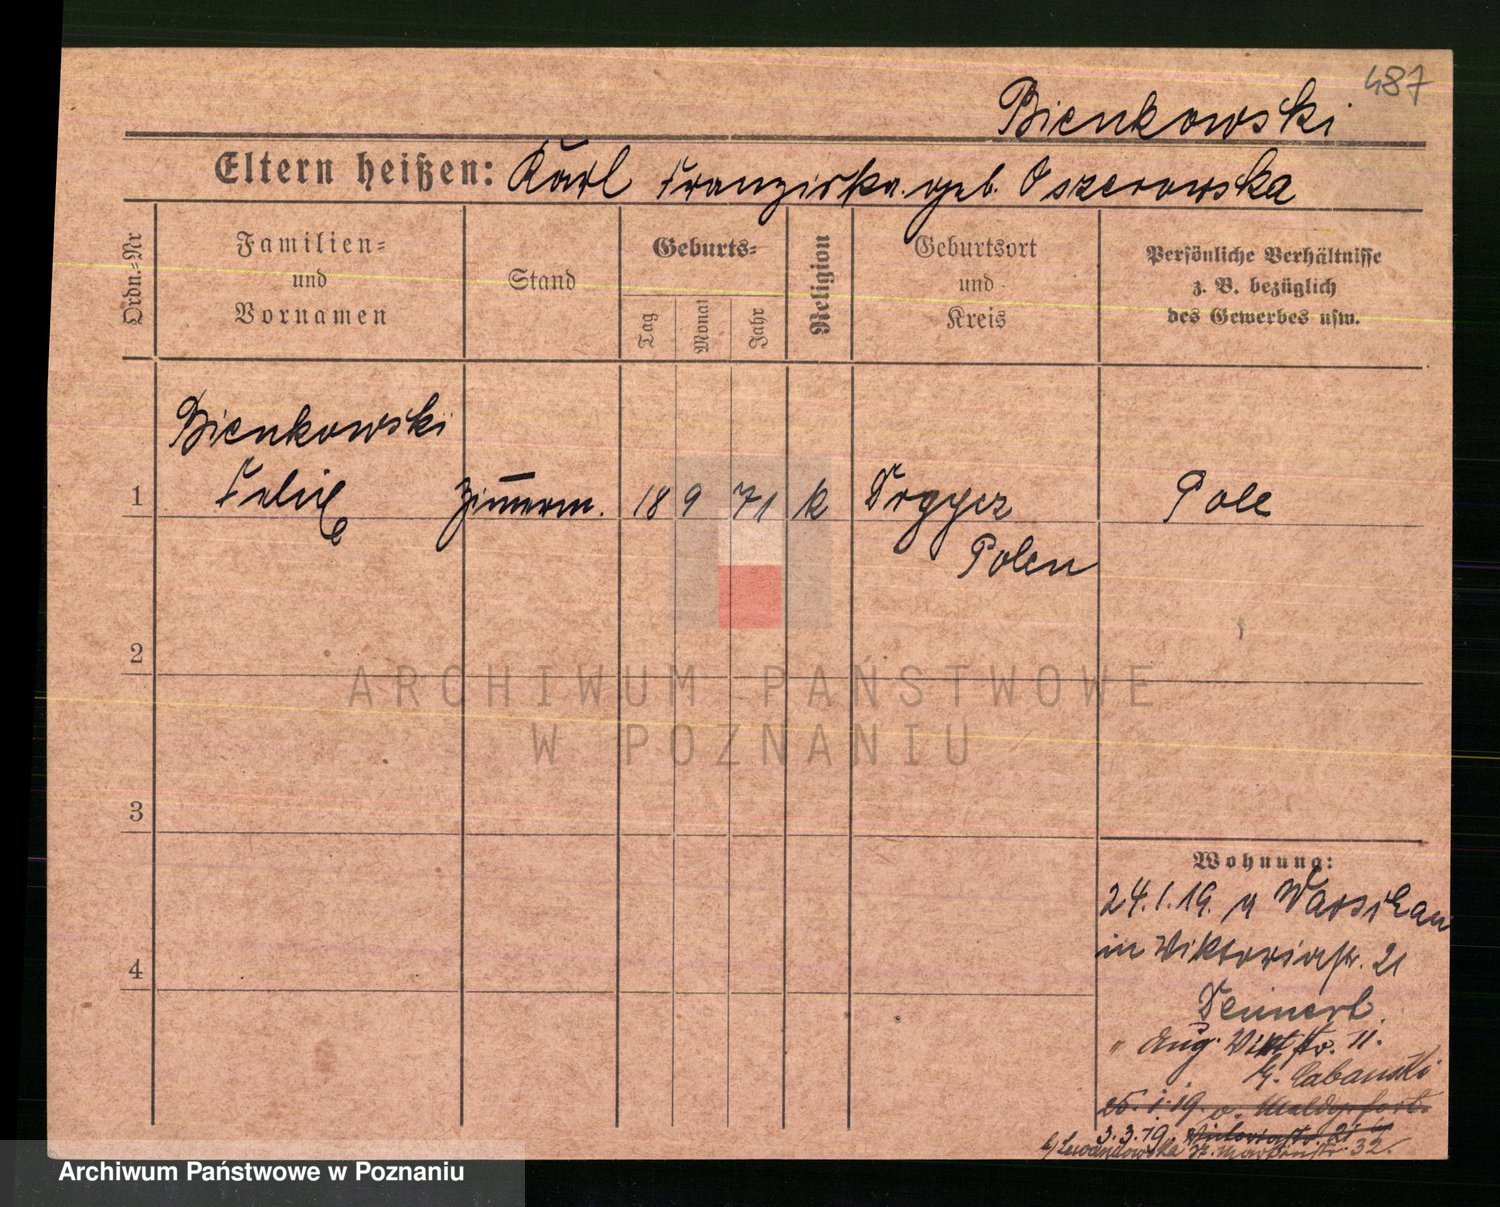 487
Bienkowski
Eltern heißen: Karl Franziska geb. Oszerowska
Ordn.=Nr
Familien=
und
Vornamen
Stand
Geburts=
Tag
Monat
Jahr
Religion
Geburtsort
und
Kreis
Persönliche Verhältnisse
z. B. bezüglich
des Gewerbes usw.
Bienkowski
1 Felix Zimmerm. 18 9 71 k Trzycz Pole
Polen
2
ARCHIWUM PAŃSTWOWE
W POZNANIU
3
Wohnung:
24.1.19. v Warschau
in Viktoriastr. 21
4
Dennert.
" Aug. Vikt str. 11.
b. Cabanski
25.1.19. v.
3.3.19. Viktoriastr. 21
b/Lewandowska St. Martinstr. 32.
Archiwum Państwowe w Poznaniu